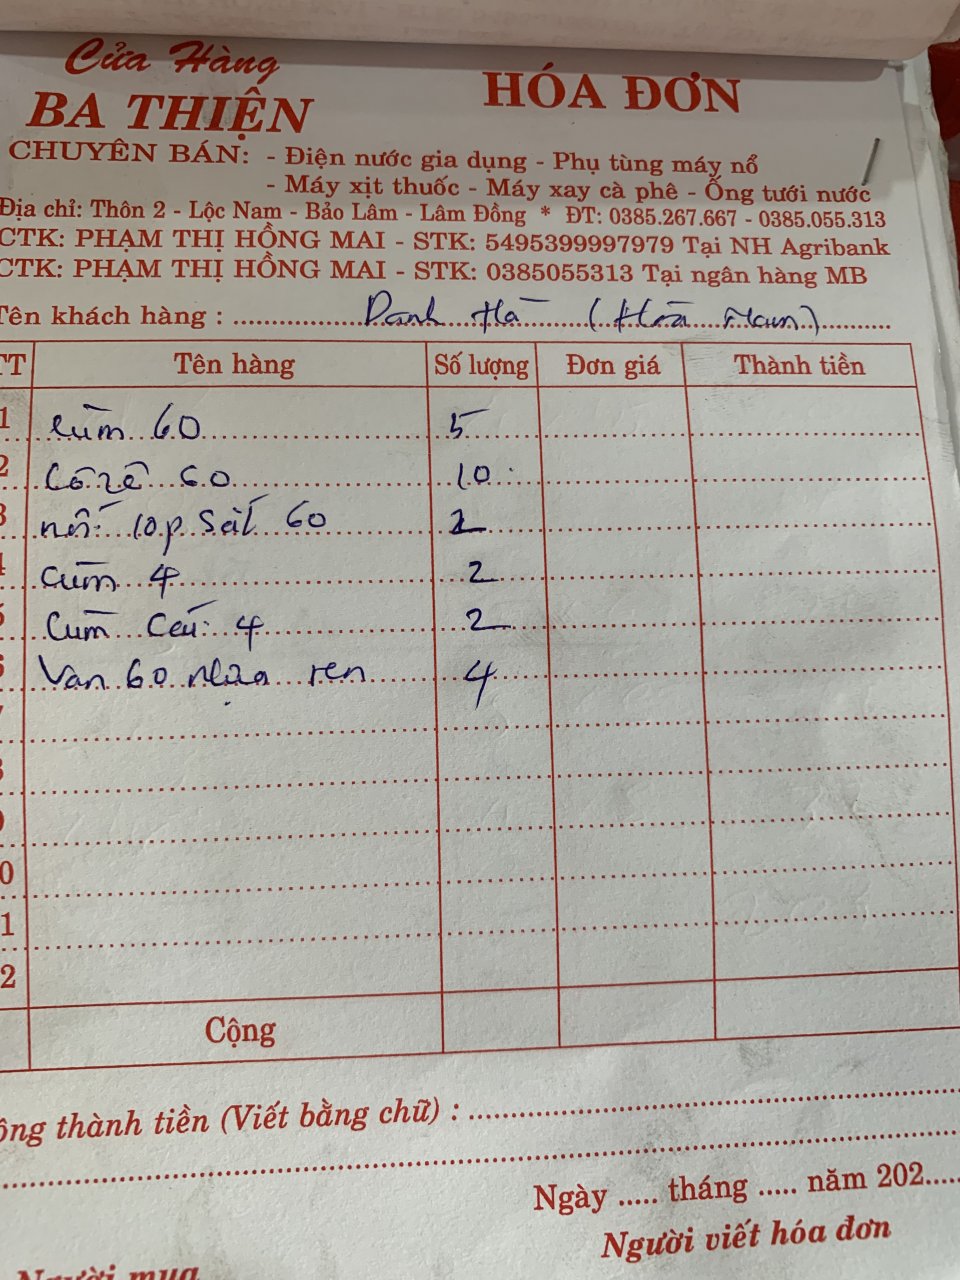 Cửa Hàng
BA THIỆN
HÓA ĐƠN
CHUYÊN BÁN: - Điện nước gia dụng - Phụ tùng máy nổ
- Máy xịt thuốc - Máy xay cà phê - Ống tưới nước
Địa chỉ: Thôn 2 - Lộc Nam - Bảo Lâm - Lâm Đồng * ĐT: 0385.267.667 - 0385.055.313
CTK: PHẠM THỊ HỒNG MAI - STK: 5495399997979 Tại NH Agribank
CTK: PHẠM THỊ HỒNG MAI - STK: 0385055313 Tại ngân hàng MB
Tên khách hàng : Danh Hà (Hoà Nam)
TT Tên hàng Số lượng Đơn giá Thành tiền
1 cùm 60 5
2 Cô zê 60 10
3 nối lọp sắt 60 2
4 cùm 4 2
5 Cùm 4 2
6 Van 60 nhựa ren 4
7
8
9
10
11
12
Cộng
Cộng thành tiền (Viết bằng chữ) :
Ngày ..... tháng ..... năm 202.....
Người viết hóa đơn
Người mua